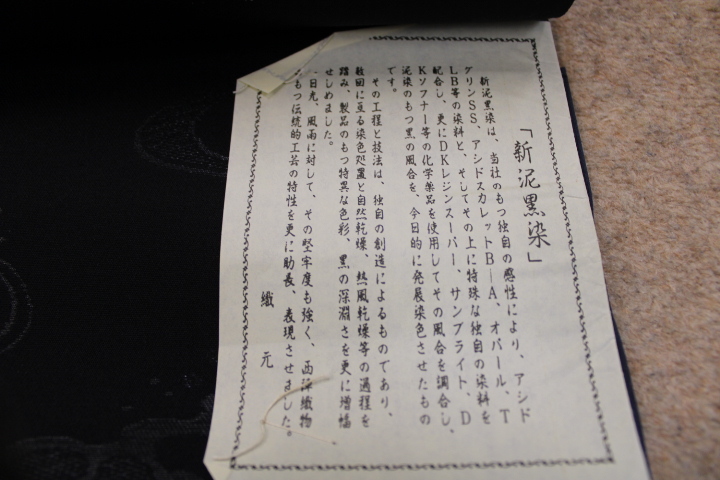 「新泥黒染」
新泥黒染は、当社のもつ独自の感性により、アシド
グリンSS、アシドスカレットB―A、オパール、T
LB等の染料と、そしてその上に特殊な独自の染料を
配合し、更にDKレジンスーパー、サンブライト、D
Kソフナー等の化学薬品を使用してその風合を調合し、
泥染のもつ黒の風合を、今日的に発展染色させたもの
です。
その工程と技法は、独自の創造によるものであり、
数回に亘る染色処置と自然乾燥、熱風乾燥等の過程を
踏み、製品のもつ特異な色彩、黒の深淵さを更に増幅
せしめました。
日光、風雨に対して、その堅牢度も強く、西洋織物
もつ伝統的工芸の特性を更に助長、表現させました。
織元